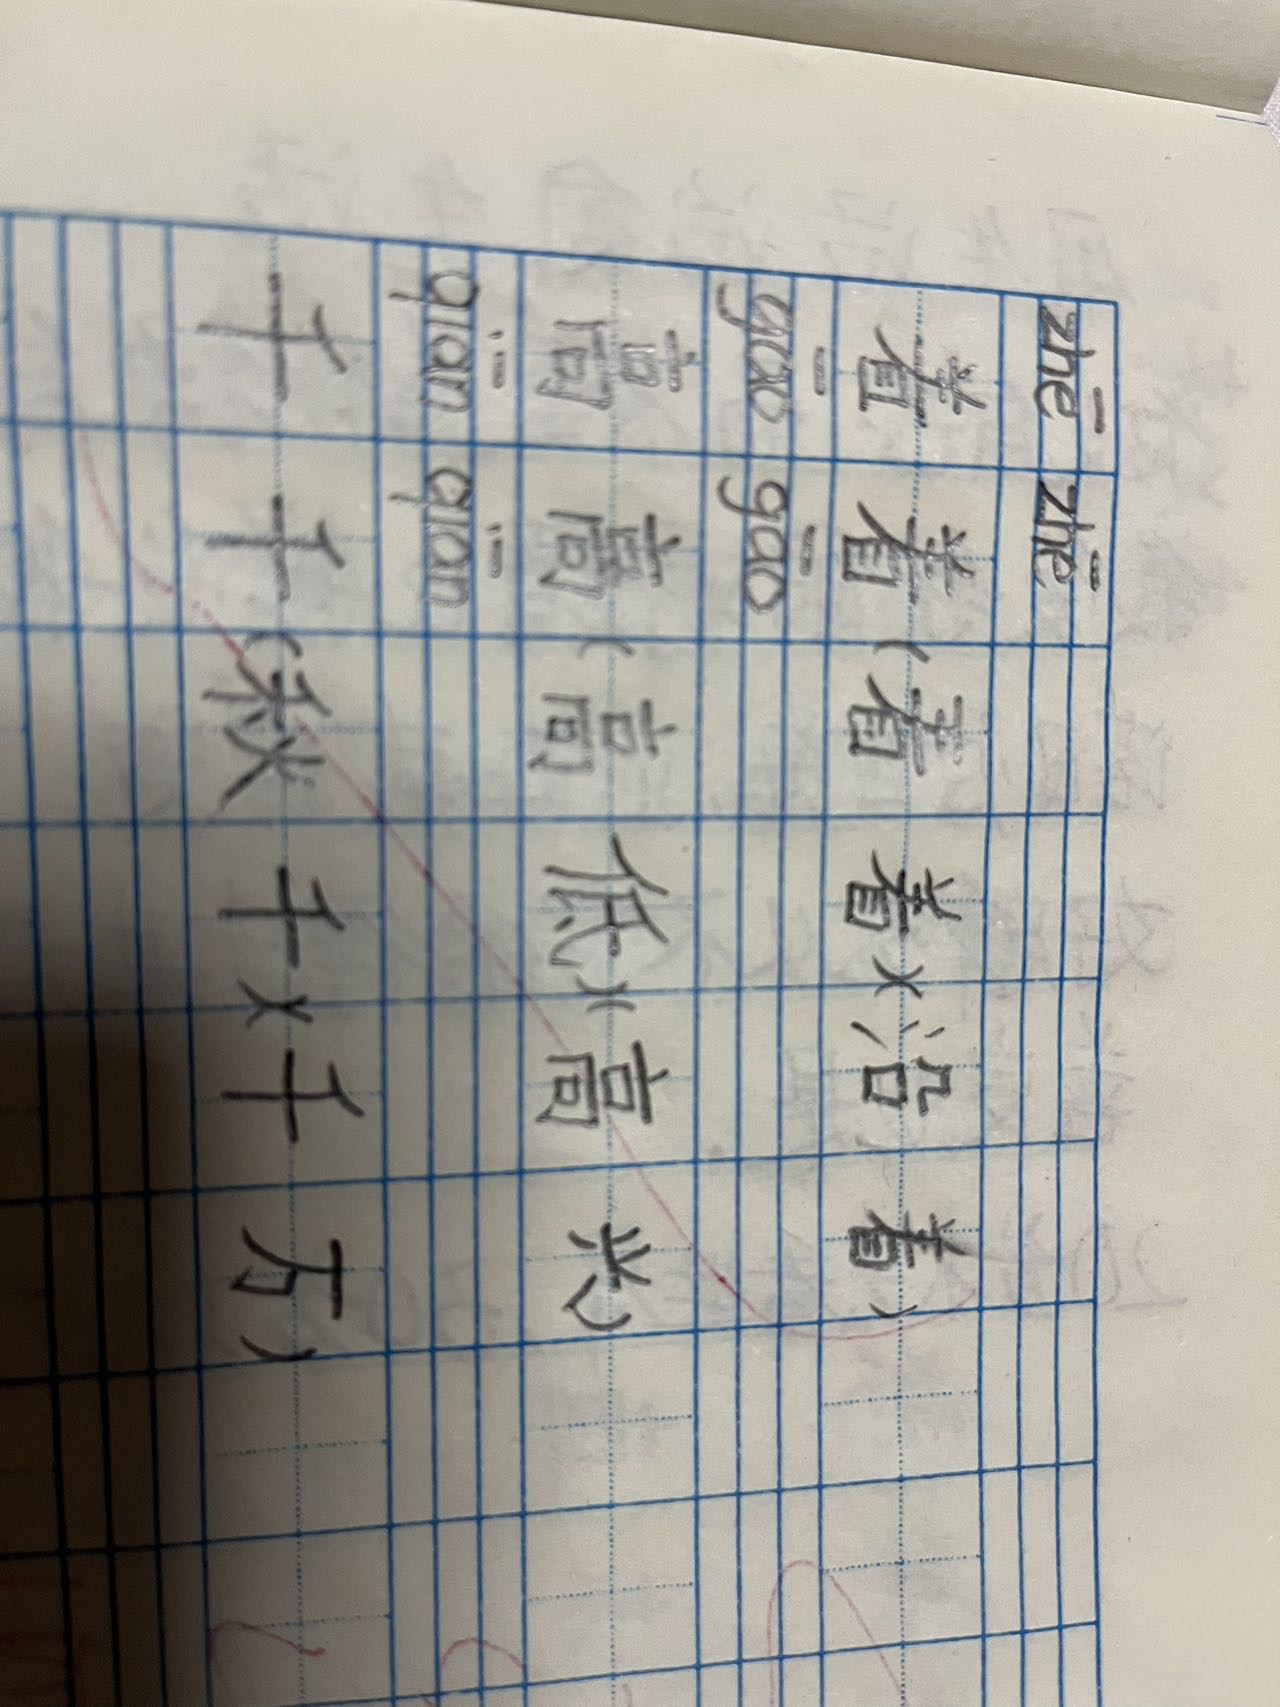 zhē zhē
着 着 (看着)(沿着)
gāo gāo
高 高 (高低)(高兴)
qiān qiān
千 千 (秋千)(千万)